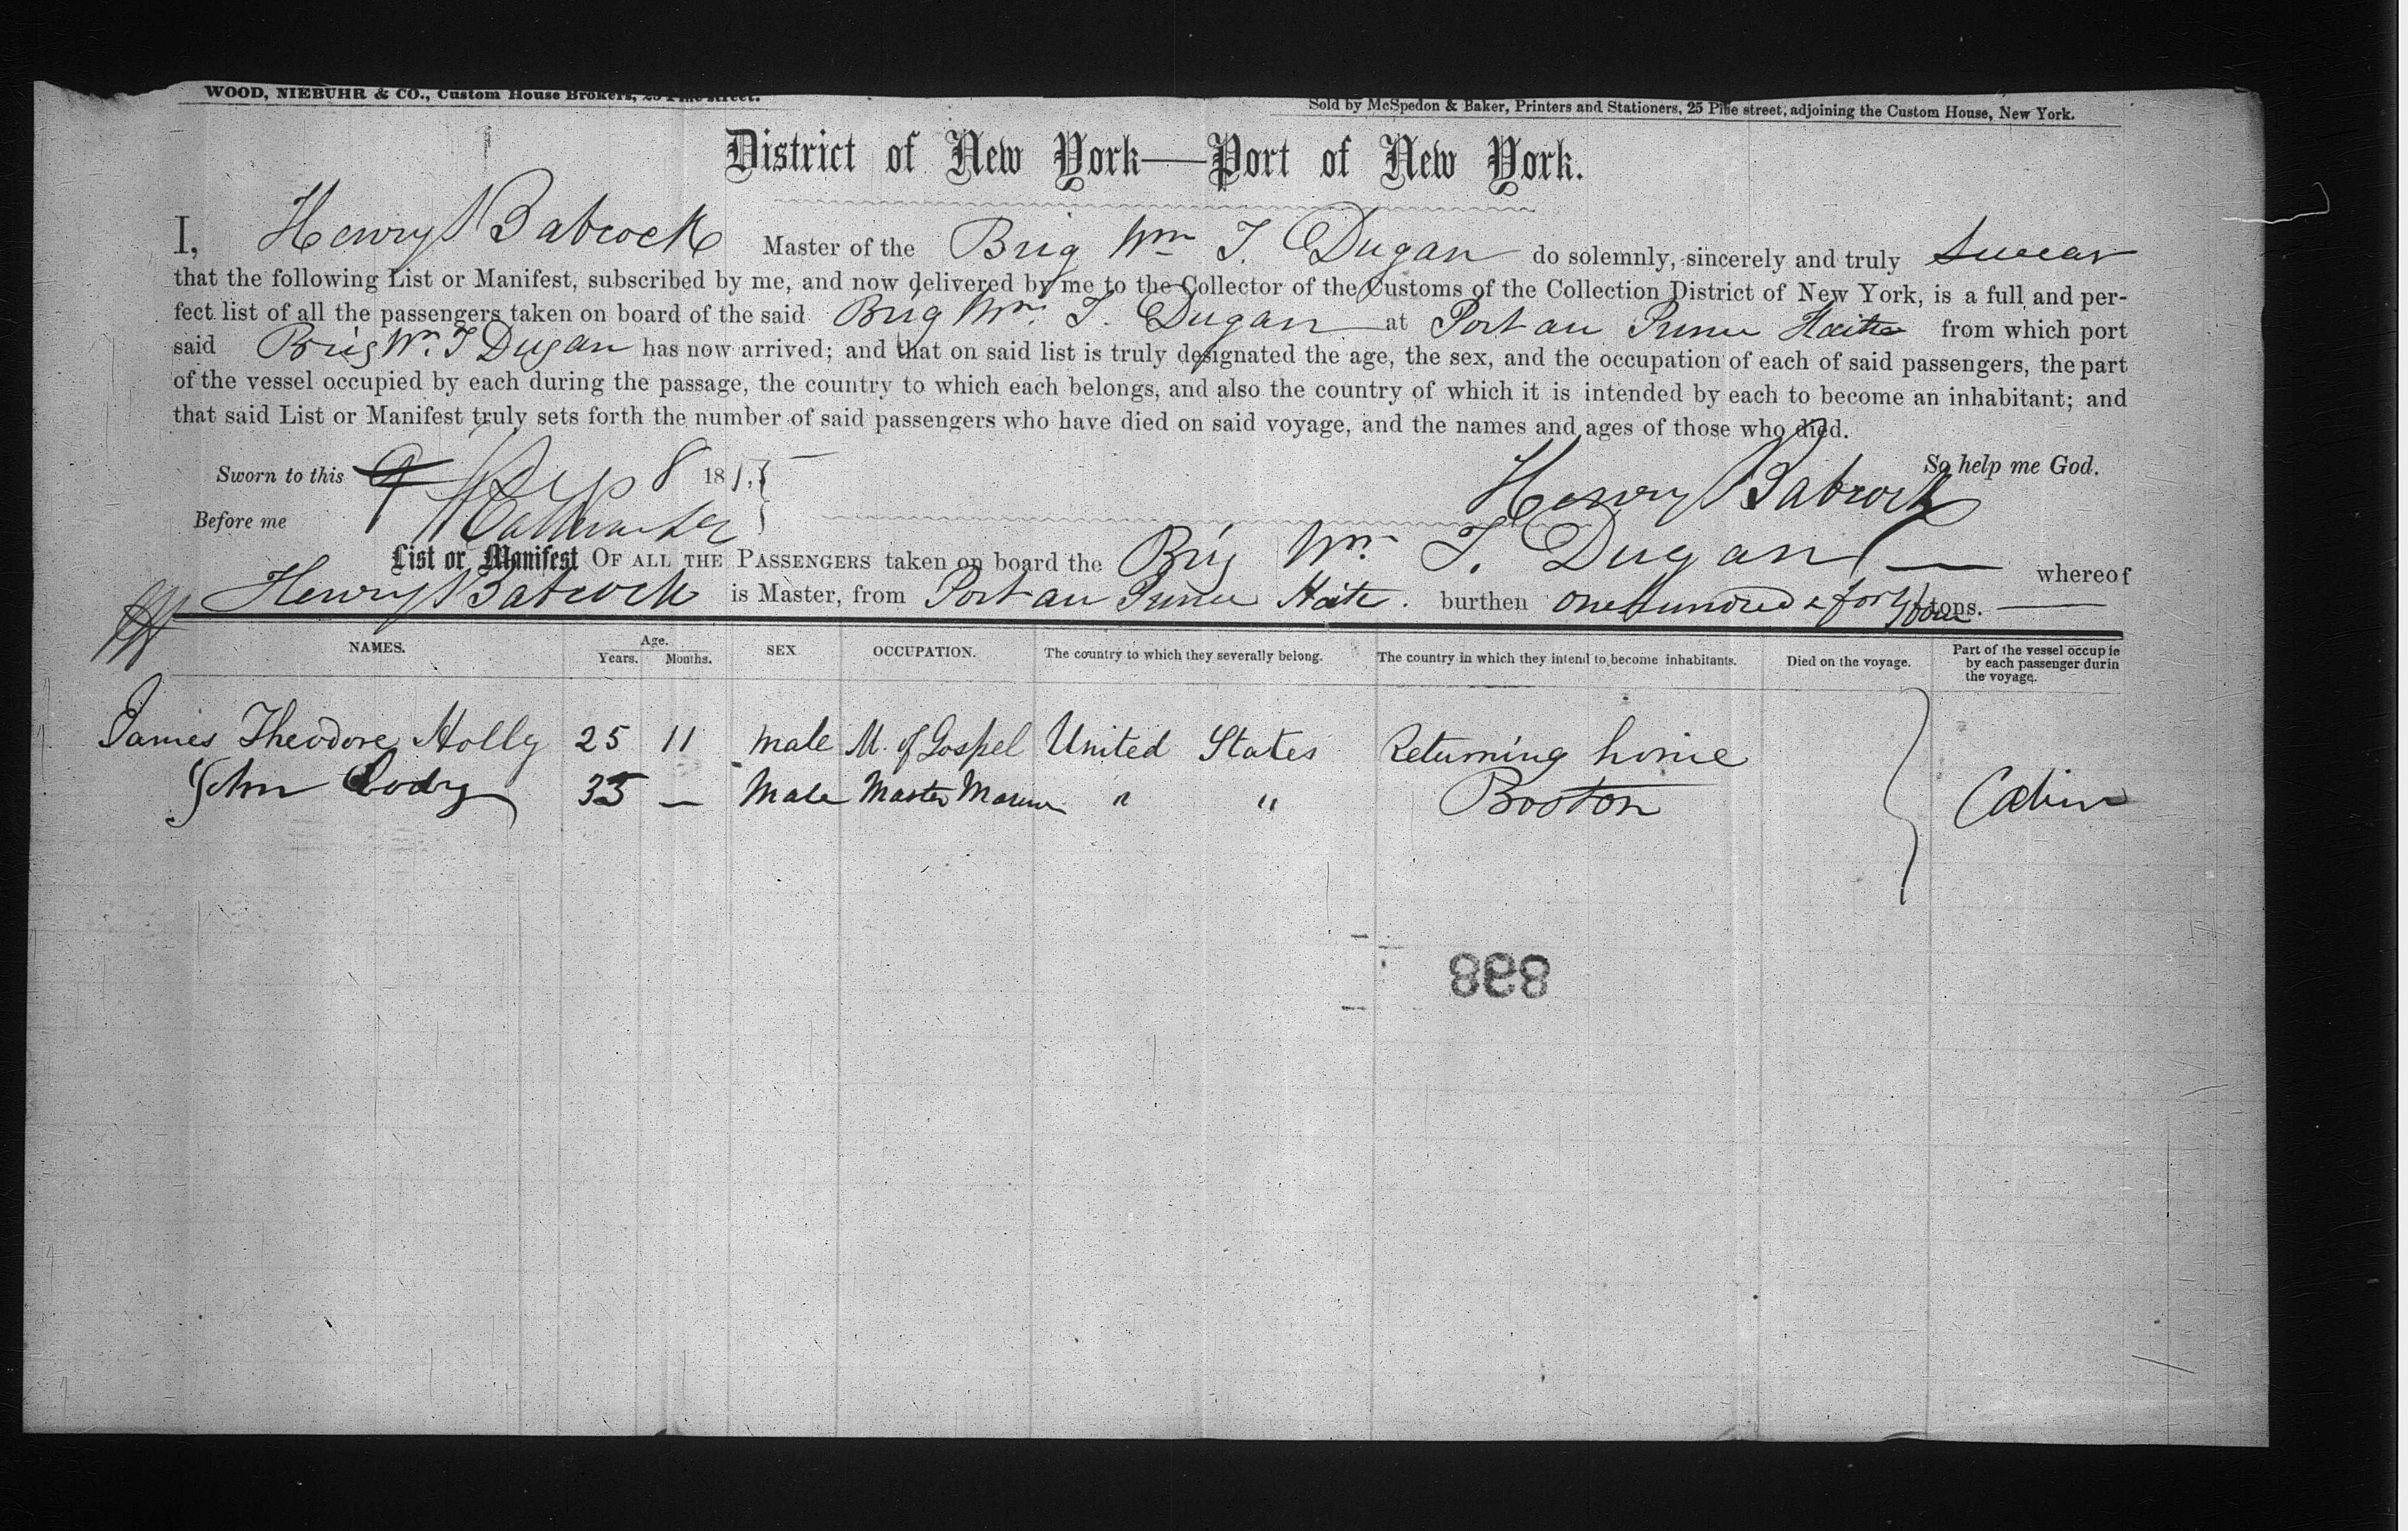 WOOD, NIEBUHR & CO., Custom House Brokers, 25 Pine street.
Sold by McSpedon & Baker, Printers and Stationers, 25 Pine street, adjoining the Custom House, New York.
District of New York—Port of New York.
I, Henry Babcock Master of the Brig Wm T. Dugan do solemnly, sincerely and truly swear
that the following List or Manifest, subscribed by me, and now delivered by me to the Collector of the Customs of the Collection District of New York, is a full and per-
fect list of all the passengers taken on board of the said Brig Wm. T. Dugan at Port au Prince Haiti from which port
said Brig Wm. T Dugan has now arrived; and that on said list is truly designated the age, the sex, and the occupation of each of said passengers, the part
of the vessel occupied by each during the passage, the country to which each belongs, and also the country of which it is intended by each to become an inhabitant; and
that said List or Manifest truly sets forth the number of said passengers who have died on said voyage, and the names and ages of those who died.
So help me God.
Sworn to this 18
Henry Babcock
Before me
List or Manifest OF ALL THE PASSENGERS taken on board the Brig Wm. T. Dugan whereof
Henry Babcock is Master, from Port au Prince Haiti. burthen one hundred & forty four tons.
NAMES. Age. Years. Months. SEX OCCUPATION. The country to which they severally belong. The country in which they intend to become inhabitants. Died on the voyage. Part of the vessel occupie by each passenger durin the voyage.
James Theodore Holly 25 11 male M. of Gospel United States Returning home
John Cody 35 — Male Master Mariner " " Boston Cabin
898